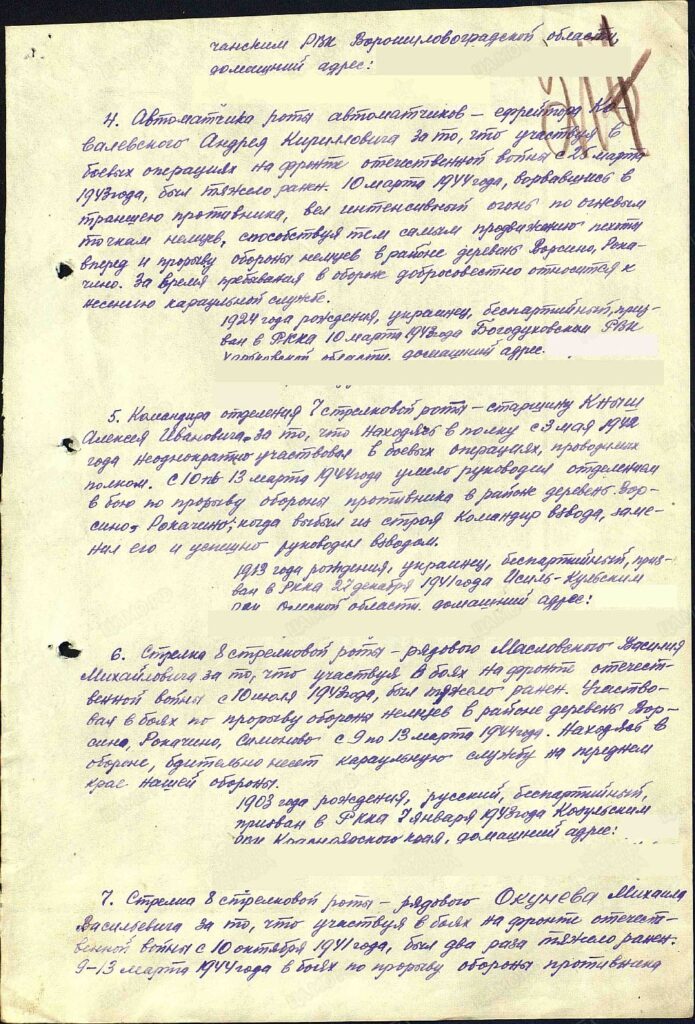 чанским РВК Ворошиловоградской области
домашний адрес:
4. Автоматчика роты автоматчиков – ефрейтора Ко-
валевского Андрея Кирилловича за то, что участвуя в
боевых операциях на фронте отечественной войны с 25 марта
1943 года, был тяжело ранен. 10 марта 1944 года, ворвавшись в
траншею противника, вел интенсивный огонь по огневым
точкам немцев, способствуя тем самым продвижению пехоты
вперед и прорыву обороны немцев в районе деревень Ворсино, Рока-
чино. За время пребывания в обороне добросовестно относится к
несению караульной службе.
1924 года рождения, украинец, беспартийный, приз-
ван в РККА 10 марта 1943 года Богодуховским РВК
Харьковской области, домашний адрес.
5. Командира отделения 7 стрелковой роты – старшину Кныш
Алексея Ивановича за то, что находясь в полку с 3 мая 1942
года неоднократно участвовал в боевых операциях, проводимых
полком. С 10 по 13 марта 1944 года умело руководил отделением
в бою по прорыву обороны противника в районе деревень Вор-
сино, Рокачино; когда выбыл из строя командир взвода, заме-
нил его и успешно руководил взводом.
1913 года рождения, украинец, беспартийный, приз-
ван в РККА 22 декабря 1941 года Исиль-Кульским
РВК Омской области, домашний адрес:
6. Стрелка 8 стрелковой роты – рядового Масловского Василия
Михайловича за то, что участвуя в боях на фронте отечест-
венной войны с 10 июля 1943 года, был тяжело ранен. Участво-
вал в боях по прорыву обороны немцев в районе деревень Вор-
сино, Рокачино, Симоново с 9 по 13 марта 1944 года. Находясь в
обороне, бдительно несет караульную службу на переднем
крае нашей обороны.
1903 года рождения, русский, беспартийный,
призван в РККА 7 января 1943 года Козульским
РВК Красноярского края, домашний адрес:
7. Стрелка 8 стрелковой роты – рядового Окунева Михаила
Васильевича за то, что участвуя в боях на фронте отечест-
венной войны с 10 октября 1941 года, был два раза тяжело ранен.
9-13 марта 1944 года в боях по прорыву обороны противника